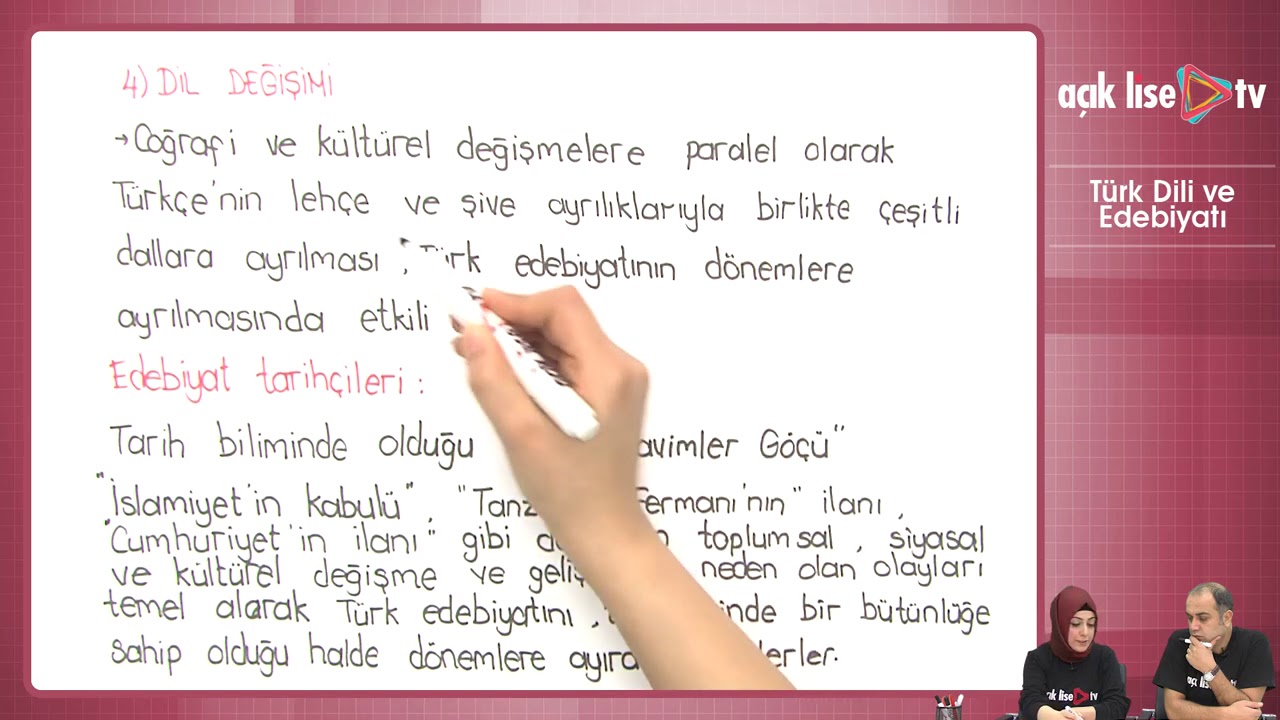 4) DİL DEĞİŞİMİ
→Coğrafi ve kültürel değişmelere paralel olarak
Türkçe'nin lehçe ve şive ayrılıklarıyla birlikte çeşitli
dallara ayrılması, Türk edebiyatının dönemlere
ayrılmasında etkili
Edebiyat tarihçileri :
Tarih biliminde olduğu Göçü"
"İslamiyet'in kabulü", "Tanz Fermanı'nın" ilanı,
"Cumhuriyet'in ilanı" gibi toplumsal, siyasal
ve kültürel değişme ve neden olan olayları
temel alarak Türk edebiyatını, bir bütünlüğe
sahip olduğu halde dönemlere
açık lise tv
Türk Dili ve
Edebiyatı
açık lise tv